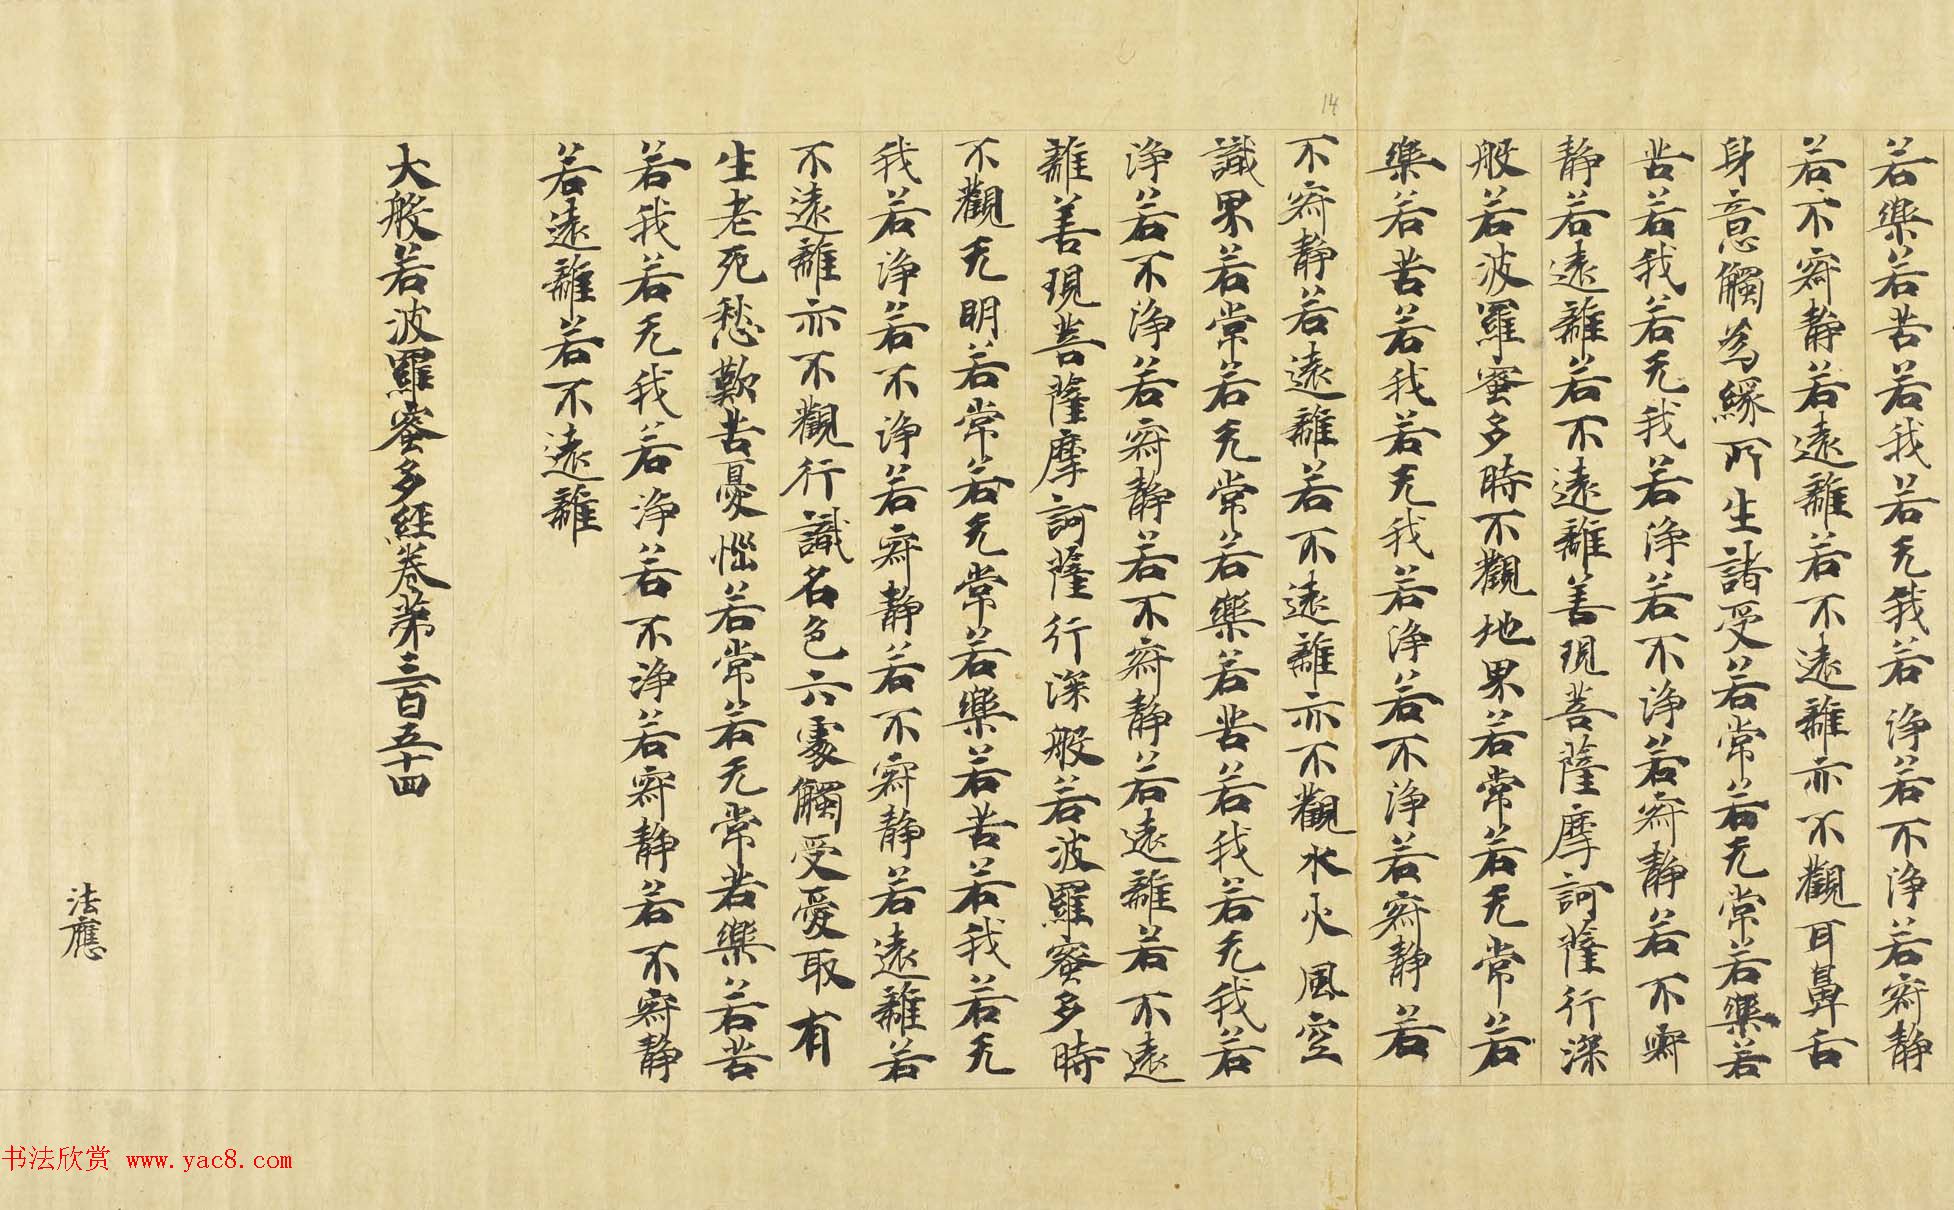 14
若樂若苦若我若无我若淨若不淨若寂靜
若不寂靜若遠離若不遠離亦不觀耳鼻舌
身意觸為緣所生諸受若常若无常若樂若
苦若我若无我若淨若不淨若寂靜若不寂
靜若遠離若不遠離善現菩薩摩訶薩行深
般若波羅蜜多時不觀地界若常若无常若
樂若苦若我若无我若淨若不淨若寂靜若
不寂靜若遠離若不遠離亦不觀水火風空
識界若常若无常若樂若苦若我若无我若
淨若不淨若寂靜若不寂靜若遠離若不遠
離善現菩薩摩訶薩行深般若波羅蜜多時
不觀无明若常若无常若樂若苦若我若无
我若淨若不淨若寂靜若不寂靜若遠離若
不遠離亦不觀行識名色六處觸受愛取有
生老死愁歎苦憂惱若常若无常若樂若苦
若我若无我若淨若不淨若寂靜若不寂靜
若遠離若不遠離
大般若波羅蜜多經卷第三百五十四
法應
书法欣赏 www.yac8.com